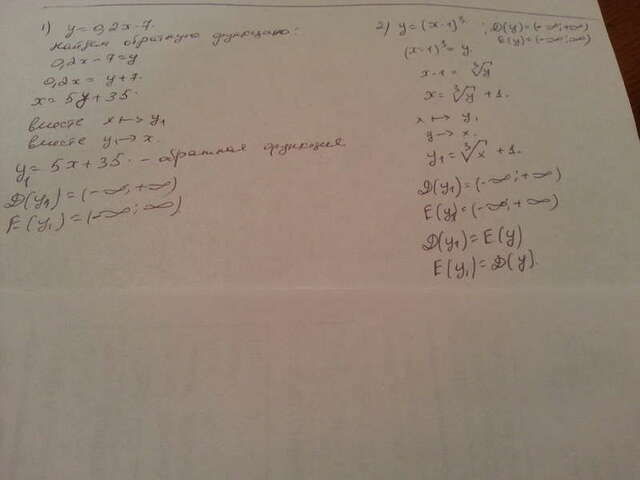 1) y = 0,2x - 7.
Найдем обратную функцию:
0,2x - 7 = y
0,2x = y + 7.
x = 5y + 35.
вместо x ↦ y₁
вместо y ↦ x.
y₁ = 5x + 35. - обратная функция
D(y₁) = (-∞; +∞)
E(y₁) = (-∞; ∞)
2) y = (x-1)³ ; D(y) = (-∞; +∞)
E(y) = (-∞; ∞)
(x-1)³ = y.
x - 1 = ∛y
x = ∛y + 1.
x ↦ y₁
y → x.
y₁ = ∛x + 1.
D(y₁) = (-∞; +∞)
E(y₁) = (-∞; +∞)
D(y₁) = E(y)
E(y₁) = D(y).